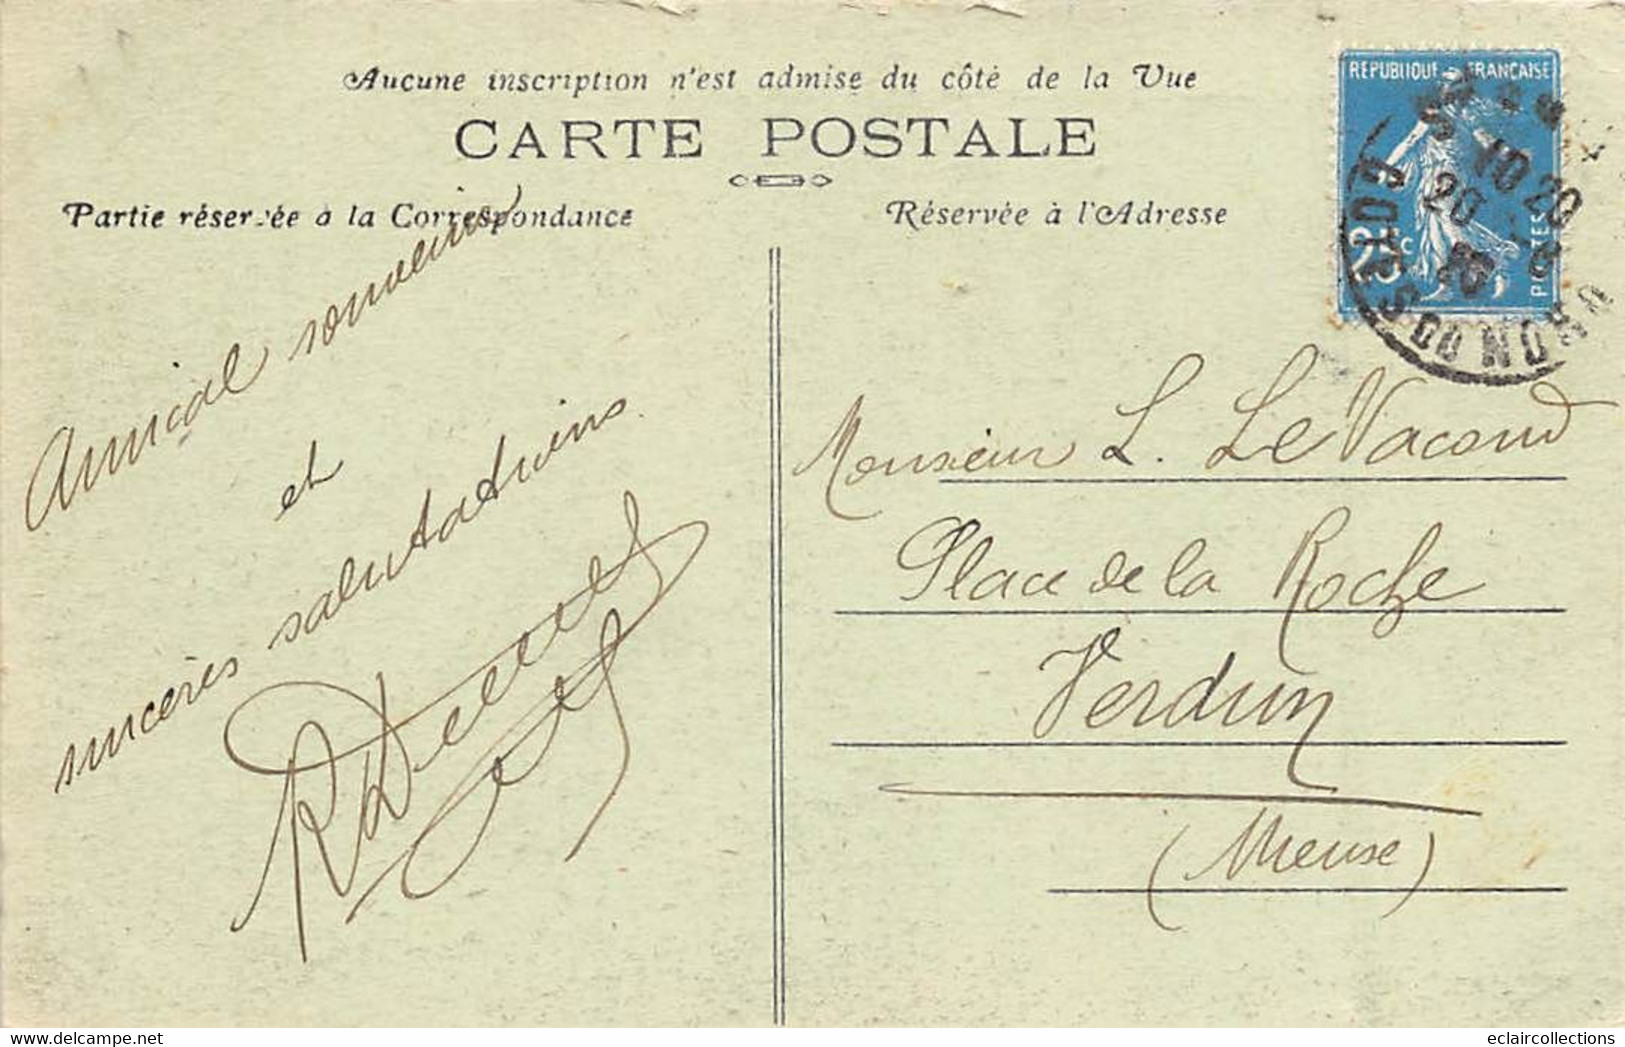 Aucune inscription n'est admise du côté de la Vue
CARTE POSTALE
Partie réservée à la Correspondance
Réservée à l'Adresse
REPUBLIQUE FRANÇAISE
25c
POSTES
Amical souvenir
et
sincères salutations
Monsieur L. Le Vacond
Place de la Roche
Verdun
(Meuse)
delcampe.net
eclaircollections